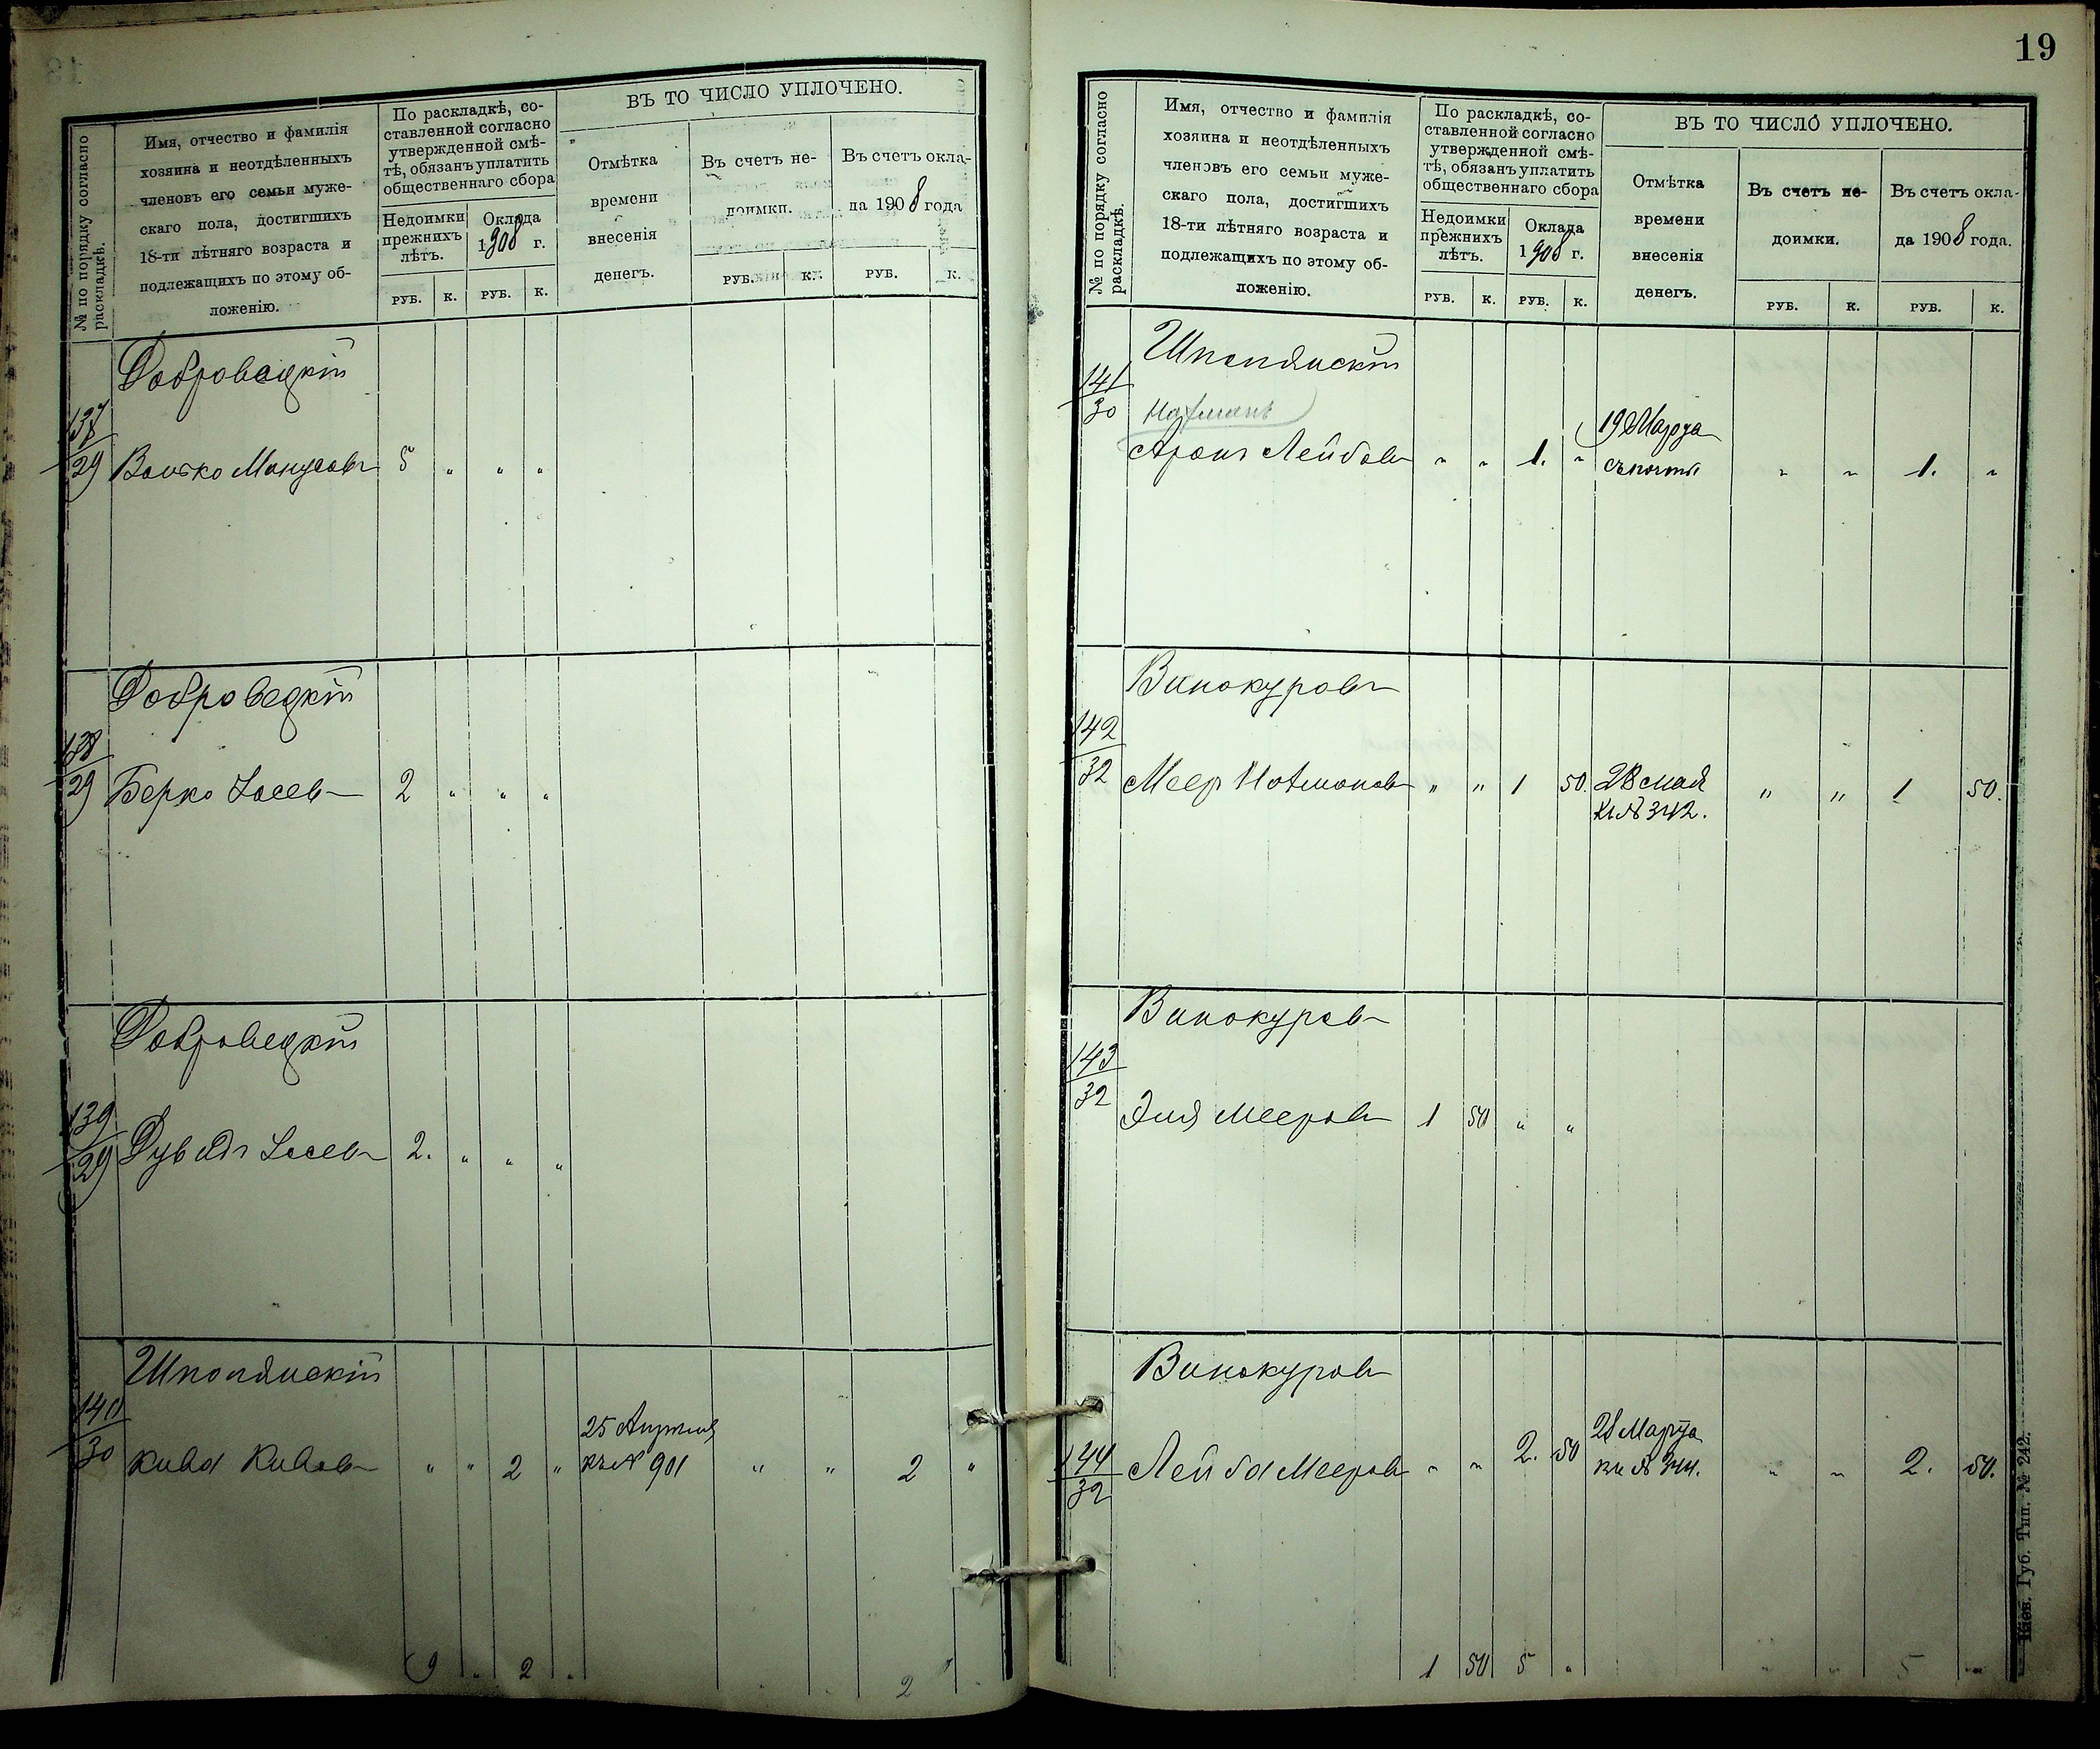 ВЪ ТО ЧИСЛО УПЛОЧЕНО.
№ по порядку согласно раскладкѣ.
Имя, отчество и фамилія
хозяина и неотдѣленныхъ
членовъ его семьи муже-
скаго пола, достигшихъ
18-ти лѣтняго возраста и
подлежащихъ по этому об-
ложенію.
По раскладкѣ, со-
ставленной согласно
утвержденной смѣ-
тѣ, обязанъ уплатить
общественнаго сбора
Недоимки
прежнихъ
лѣтъ.
Оклада
1908 г.
Отмѣтка
времени
внесенія
денегъ.
Въ счетъ не-
доимки.
Въ счетъ окла-
да 1908 года
РУБ. К. РУБ. К. РУБ. К. РУБ. К.
Добровецкій
137/29 Волько 5 " " "
Добровецкій
138/29 Берко Іосев 2 " " "
Добровецкій
139/29 Дувидъ Іосев 2. " " "
Шполянскій
25 Апреля
140/30 Кива Кивов " " 2 " кв № 901 " " 2 "
9 " 2 " 2
19
ВЪ ТО ЧИСЛО УПЛОЧЕНО.
№ по порядку согласно раскладкѣ.
Имя, отчество и фамилія
хозяина и неотдѣленныхъ
членовъ его семьи муже-
скаго пола, достигшихъ
18-ти лѣтняго возраста и
подлежащихъ по этому об-
ложенію.
По раскладкѣ, со-
ставленной согласно
утвержденной смѣ-
тѣ, обязанъ уплатить
общественнаго сбора
Недоимки
прежнихъ
лѣтъ.
Оклада
1908 г.
Отмѣтка
времени
внесенія
денегъ.
Въ счетъ не-
доимки.
Въ счетъ окла-
да 1908 года.
РУБ. К. РУБ. К. РУБ. К. РУБ. К.
Шполянскій
Нахманъ
19 Марта
141/30 Аронъ Лейбов " " 1. " съ почты " " 1. "
Винокуровъ
142/32 Меер Нахманов " " 1 50. 28 мая " " 1 50.
кв № 342.
Винокуров
143/32 Эля Мееров 1 50 " "
Винокуров
28 Марта
144/32 Лейба Мееров " " 2. 50 кв № " " 2. 50.
1 50 5 " " " 5 "
Кіев. Губ. Тип. № 242.